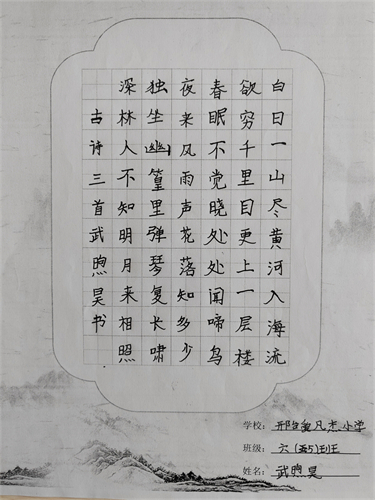 白日一山尽黄河入海流
欲穷千里目更上一层楼
春眠不觉晓处处闻啼鸟
夜来风雨声花落知多少
独坐幽篁里弹琴复长啸
深林人不知明月来相照
古诗三首武煦昊书
学校：小学
班级：六(5)班
姓名：武煦昊